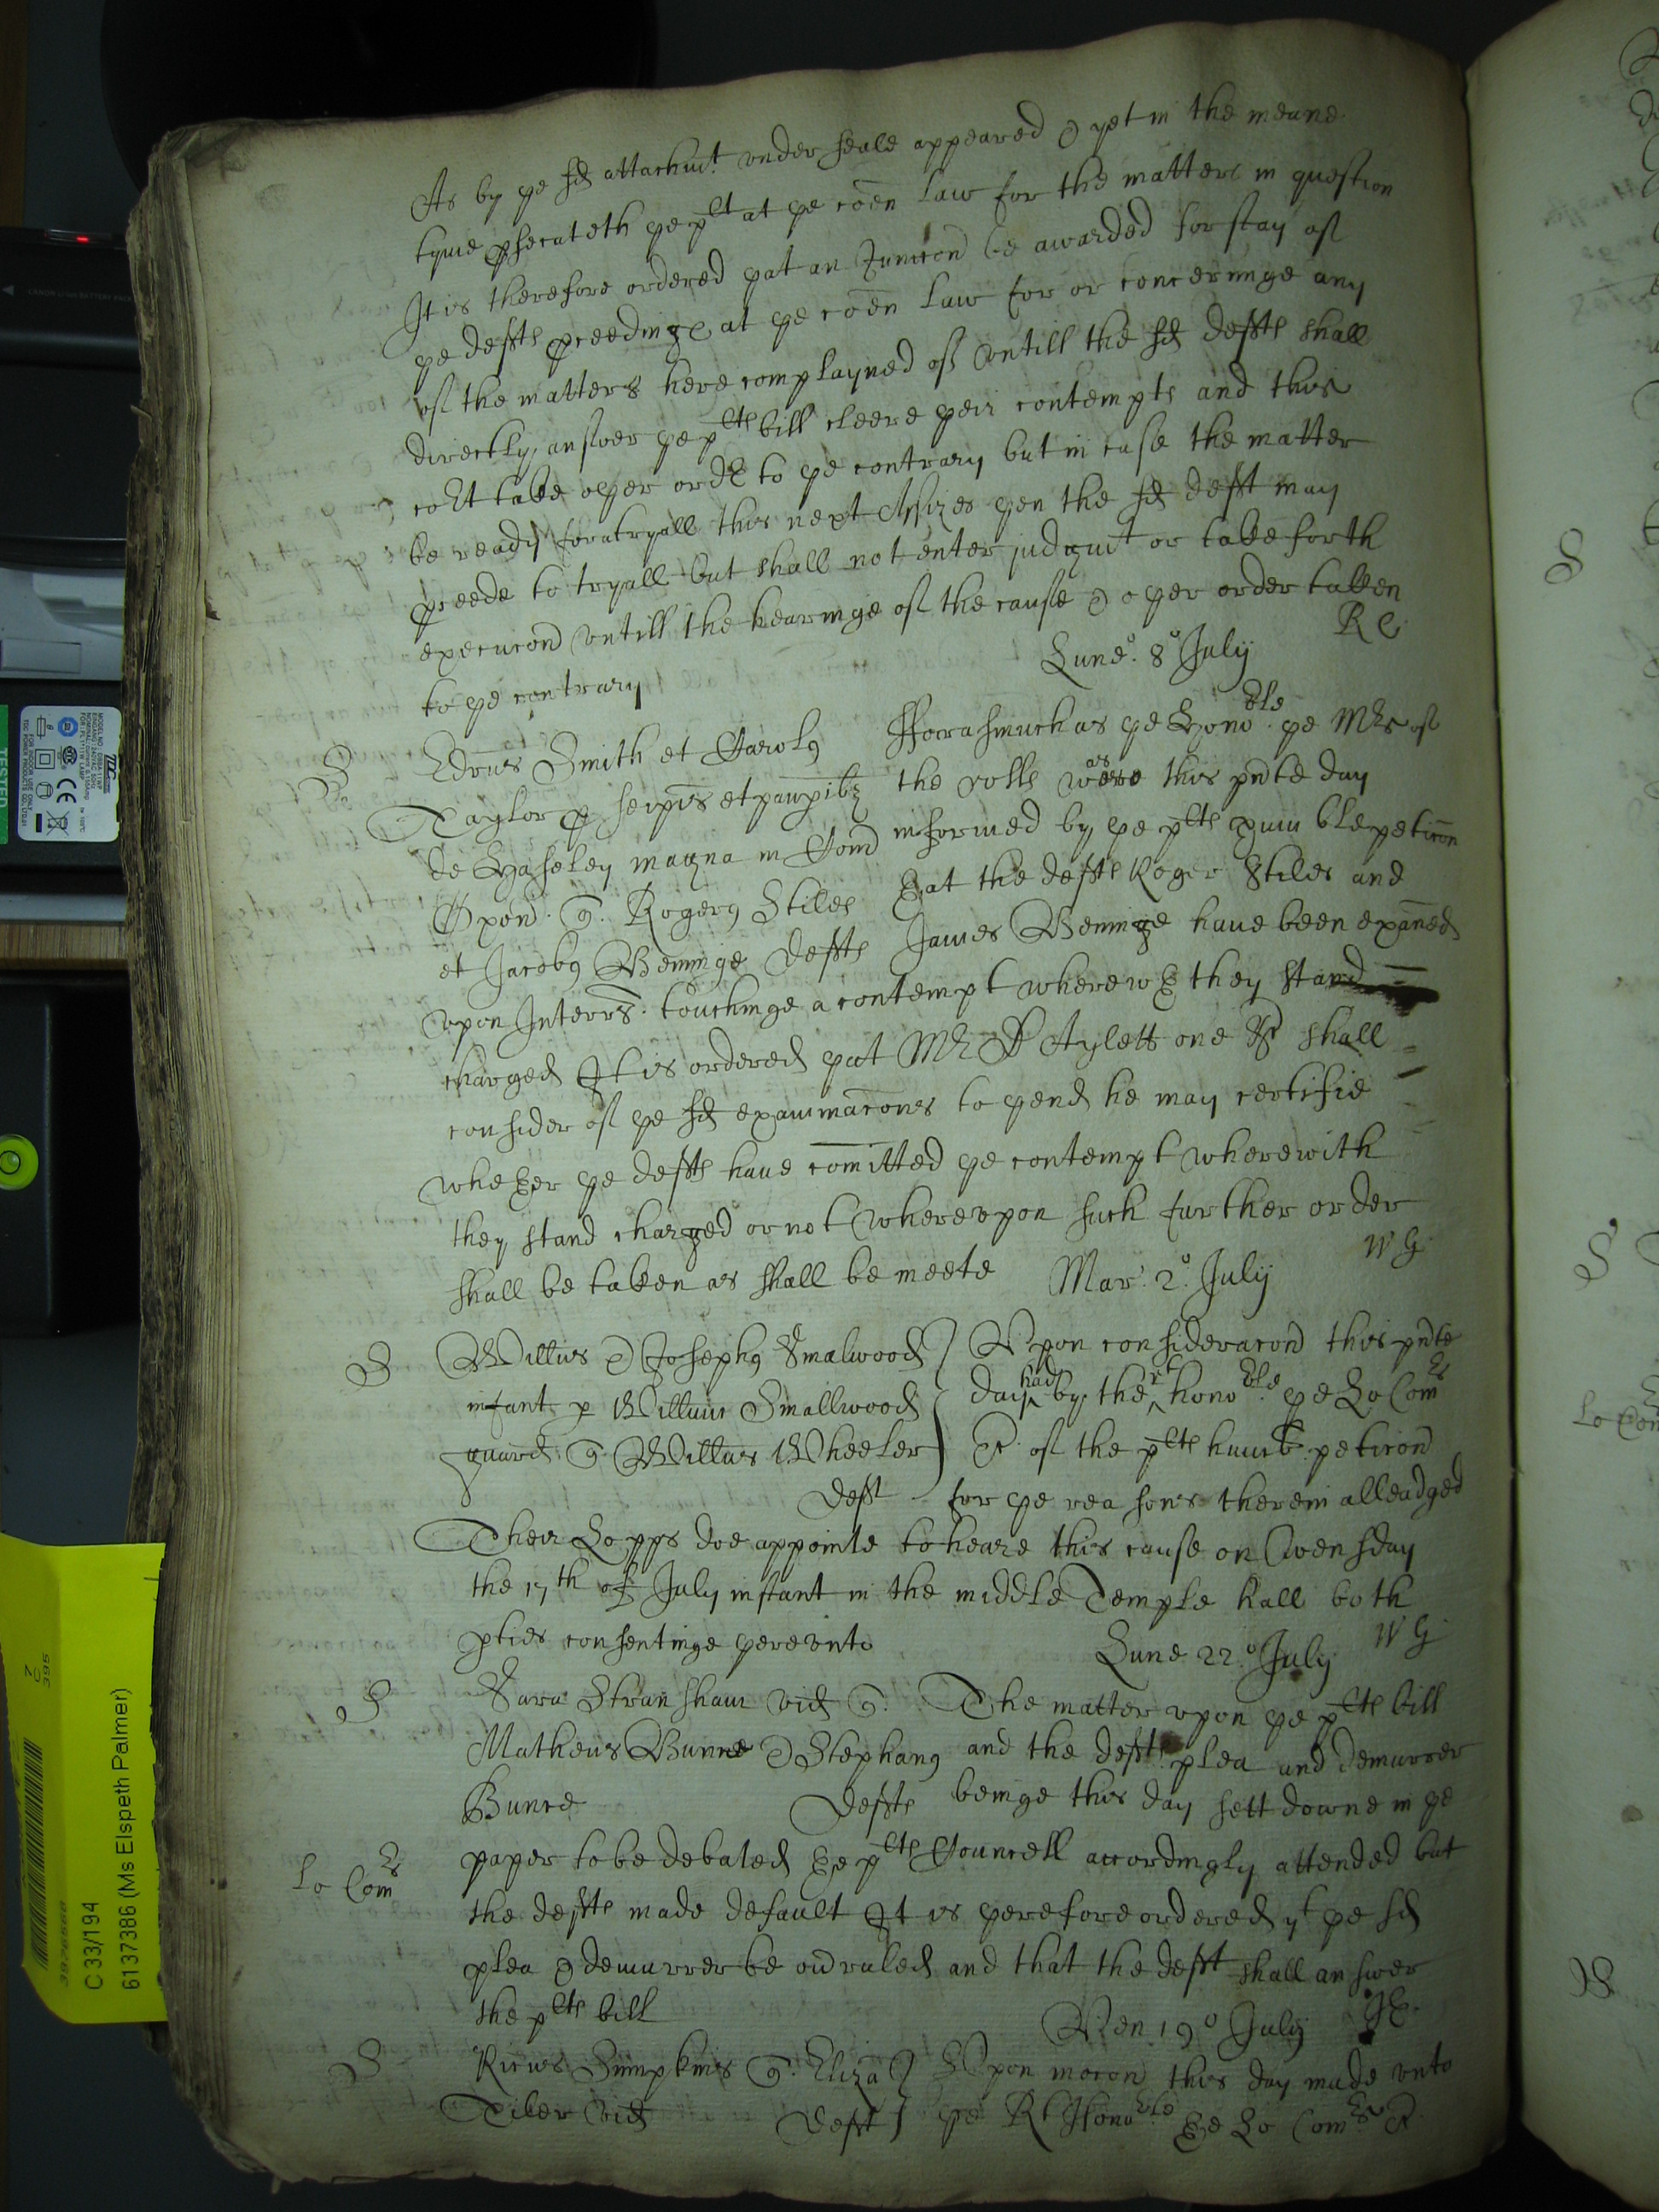 As by ye sd attachmt. under seale appeared & yet in the meane
tyme psecuteth ye plt at ye coen law for the matters in question
It is therefore ordered yat an Iunccon be awarded for stay of
ye defts pceedinge at ye coen law for or concerninge any
of the matters here complayned of untill the sd defts shall
directly answer ye plts bill cleere yeir contempts and this
cort take oyer ordr to ye contrary but in case the matter
be ready for a tryall this next Assizes yen the sd deft may
pceede to tryall but shall not enter judgmt or take forth
execucon untill the hearinge of the cause & oyer order taken
to ye contrary
R C
Lune. 8o July
S
Edrus Smith et Carol9
Taylor p seipis et paupibz
de Haseley magna in Com
Oxon. 9. Roger9 Stiles
et Jacob9 Beninge Defts
Fforasmuch as ye Honoble. ye Mr of
the rolls was this pnte day
informed by ye plts humble peticon
yat the defts Roger Stiles and
James Beninge have been exaned
upon Interrs. touchinge a contempt wherewth they stand
charged It is ordered yat Mr Dr Aylett one &c shall
consider of ye sd examinacons to yend he may certifie
wheyer ye defts have comitted ye contempt wherewith
they stand charged or not whereupon such further order
shall be taken as shall be meete
W G
Mar. 2o. July
S
Willus & Joseph9 Smalwood
infants p Willum Smallwood
guard. 9. Willus Wheeler
Deft
Upon consideracon this pnte
day had by the rt honoble ye Lo Comrs
&c. of the plts humb. peticon
for ye reasons therein alleadged
Their Lopps doe appointe to heare this cause on Wensday
the 17th of July instant in the middle Temple hall both
pties consentinge yereunto
W G
Lune 22o July
S
Sara Stransham vid 9.
Matheus Bunce & Stephan9
Bunce Defts
The matter upon ye plts bill
and the defts plea and demurrer
beinge this day sett downe in ye
Lo Comrs
paper to be debated ye plts Councell accordingly attended but
the defts made default It is yerefore ordered yt ye sd
plea & demurrer be ovruled and that the deft shall answer
the plts bill
Ven 19o July
S
Ricus Simpkins 9. Eliza
Tiler vid Deft
Upon mocon this day made unto
ye Rt Honoble ye Lo Comrs &c.
S
Lo Com
C 33/194
6137386 (Ms Elspeth Palmer)
TESTED